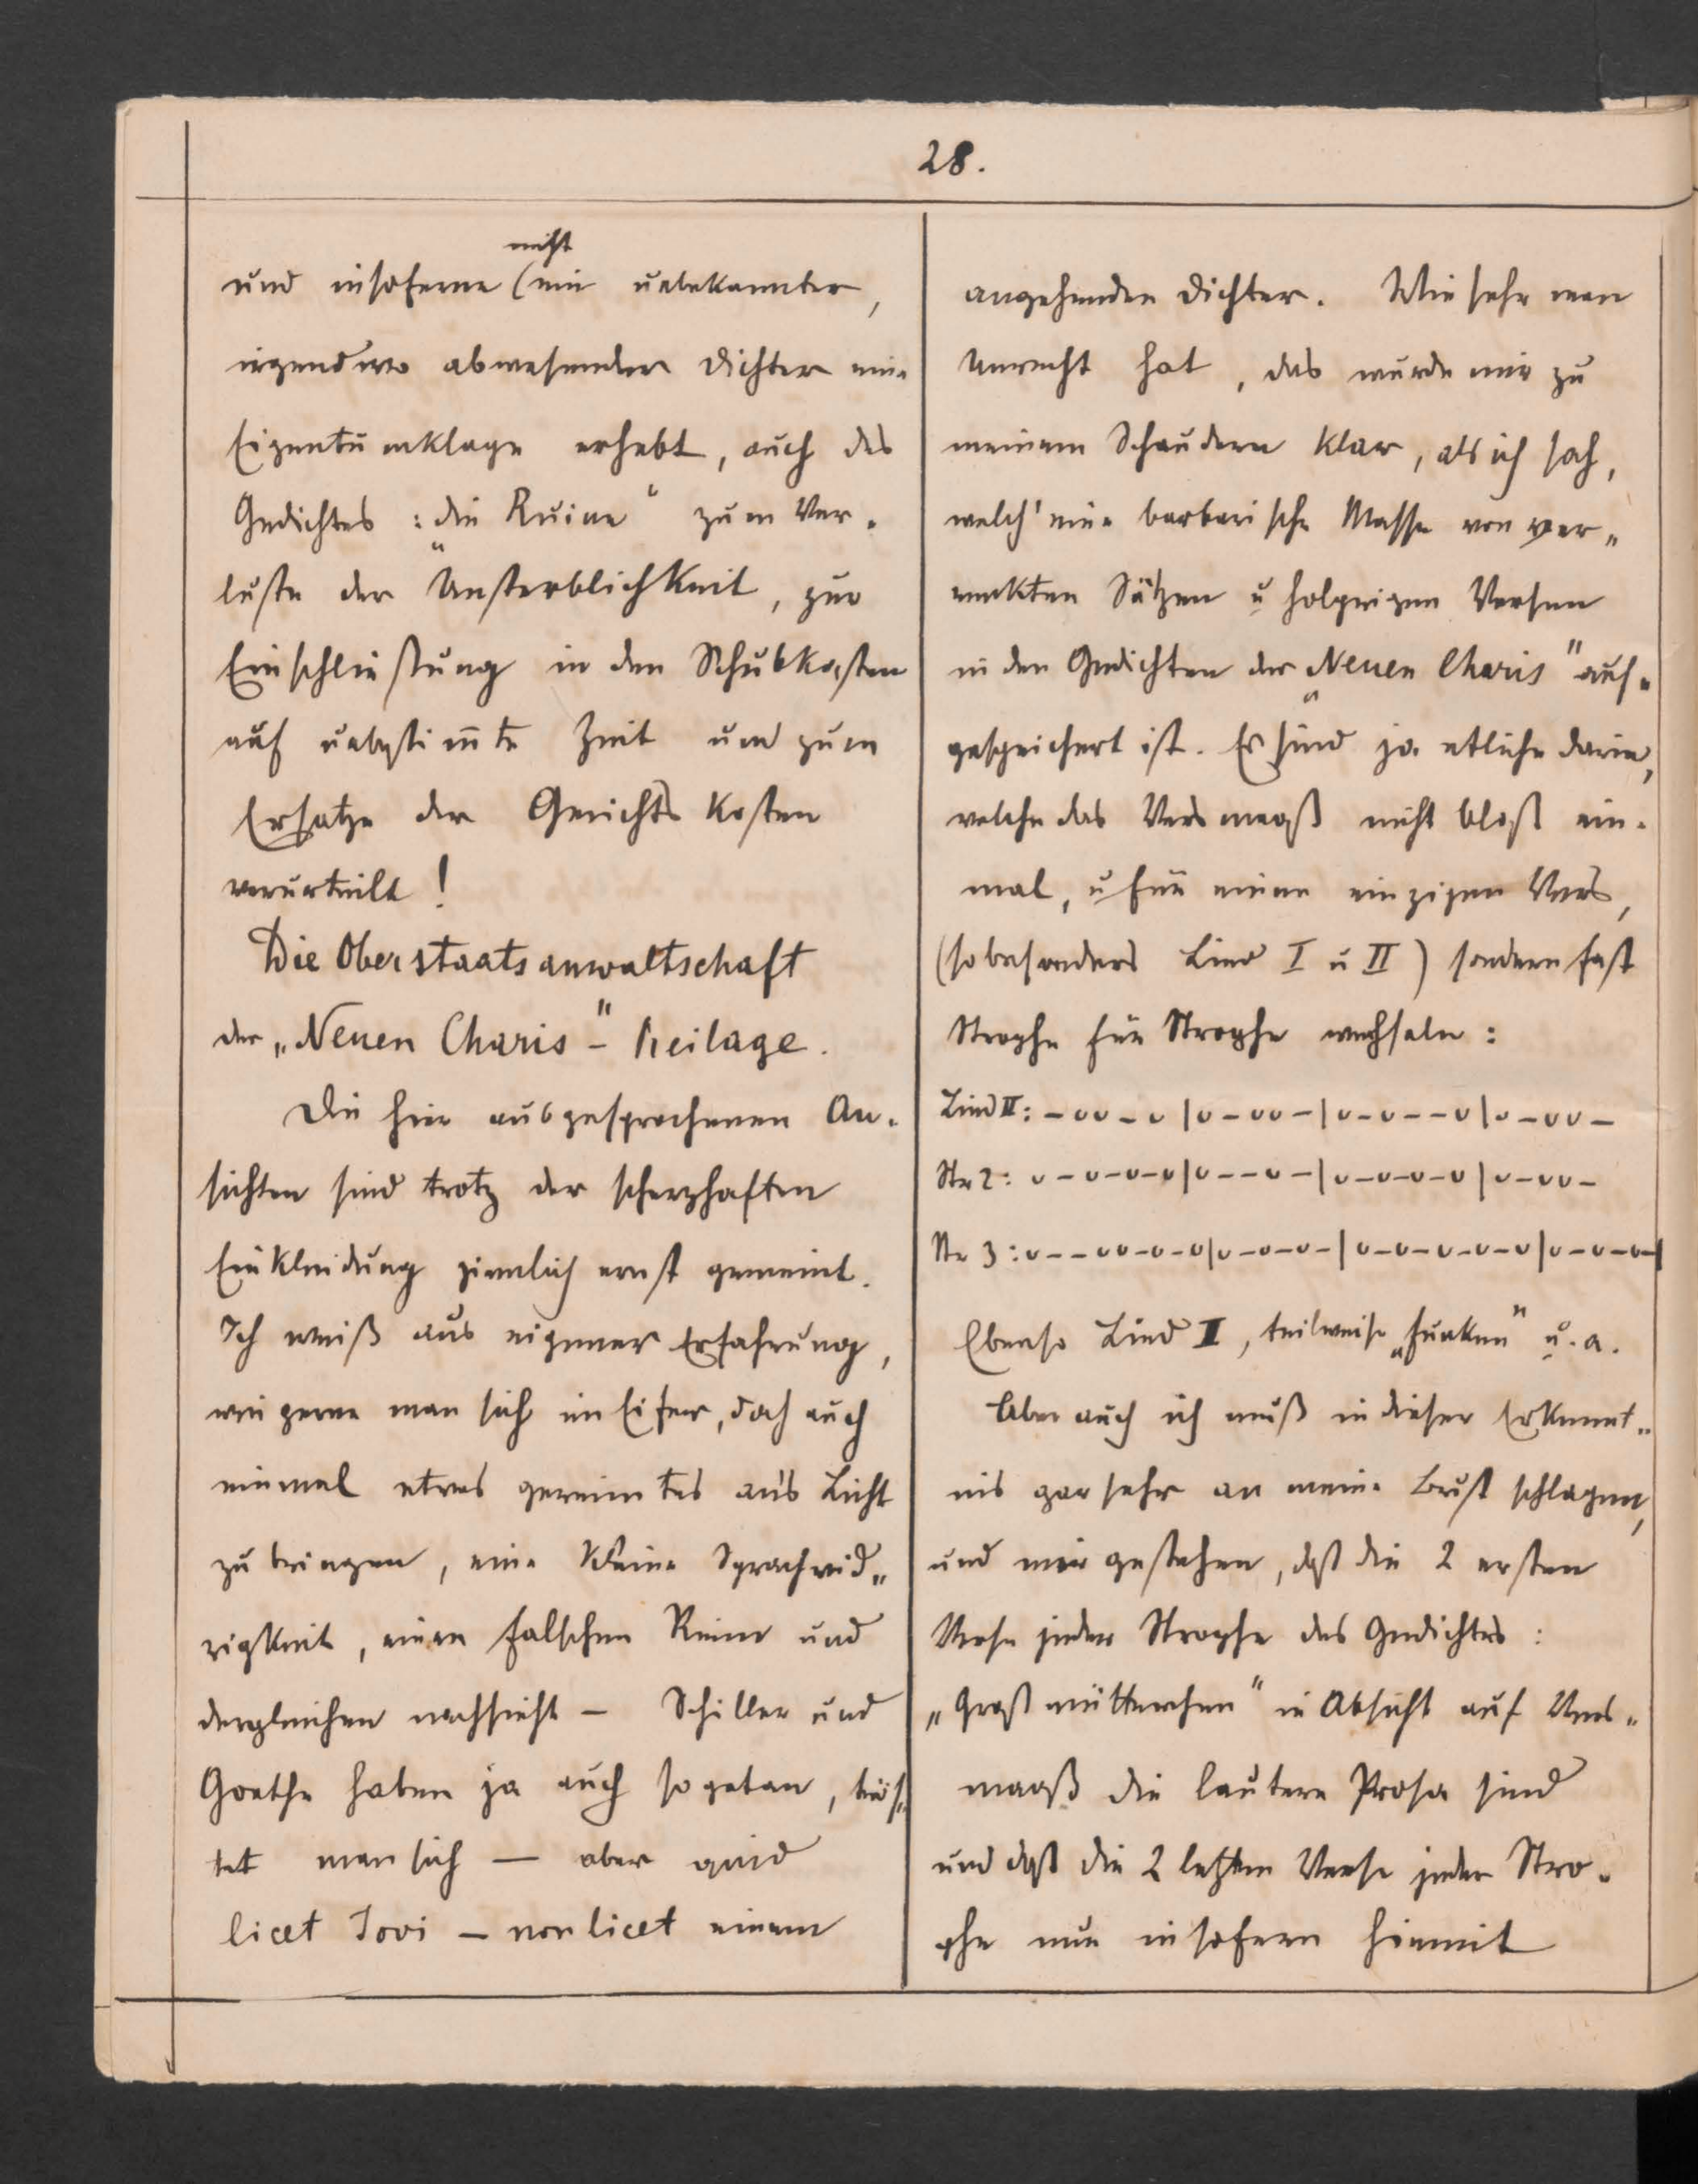 28.
nicht
und insoferne (ein unbekannter,
irgendwo abwesender Dichter eine
Eigentumklage erhebt, auch des
Gedichtes : „die Ruine“ zum Ver-
luste der Unsterblichkeit, zur
Einschließung in den Schubkasten
auf unbestim̅te Zeit und zum
Ersatze der Gerichtskosten
verurteilt!
Die Oberstaatsanwaltschaft
der „Neuen Charis“-Beilage.
Die hier ausgesprochenen An-
sichten sind trotz der scherzhaften
Einkleidung ziemlich ernst gemeint.
Ich weiß aus eigener Erfahrung,
wie gerne man sich im Eifer, doch auch
einmal etwas gereimtes an's Licht
zu bringen, eine kleine Sprachwid-
rigkeit, einen falschen Reim und
dergleichen nachsieht – Schiller und
Goethe haben ja auch so getan, trös-
tet man sich – aber quid
licet Jovi – non licet einem
angehenden Dichter. Wie sehr man
Unrecht hat, das wurde mir zu
meinem Schaudern klar, als ich sah,
welch' eine barbarische Masse von ver-
renkten Sätzen u holperigen Versen
in den Gedichten der „Neuen Charis“ auf-
gespeichert ist. Es sind ja etliche darin,
welche das Versmaaß nicht bloß ein-
mal, u für einen einzigen Vers,
(so besonders Lied I u II) sondern fast
Strophe für Strophe wechseln:
Lied II: – ᴗᴗ – ᴗ | ᴗ – ᴗᴗ – | ᴗ – ᴗ – – ᴗ | ᴗ – ᴗᴗ –
Str 2: ᴗ – ᴗ – ᴗ – ᴗ | ᴗ – – ᴗ – | ᴗ – ᴗ – ᴗ – ᴗ | ᴗ – ᴗᴗ –
Str 3: ᴗ – – ᴗᴗ – ᴗ – ᴗ | ᴗ – ᴗ – ᴗ – | ᴗ – ᴗ – ᴗ – ᴗ – ᴗ | ᴗ – ᴗ – ᴗ – |
Ebenso Lied II, teilweise „Funken“ u. a.
Aber auch ich muß in dieser Erkennt-
nis gar sehr an meine Brust schlagen,
und mir gestehen, daß die 2 ersten
Verse jeder Strophe des Gedichtes:
„Großmütterchen“ in Absicht auf Vers-
maaß die lautere Prosa sind
und daß die 2 letzten Verse jeder Stro-
phe nur insofern hiemit